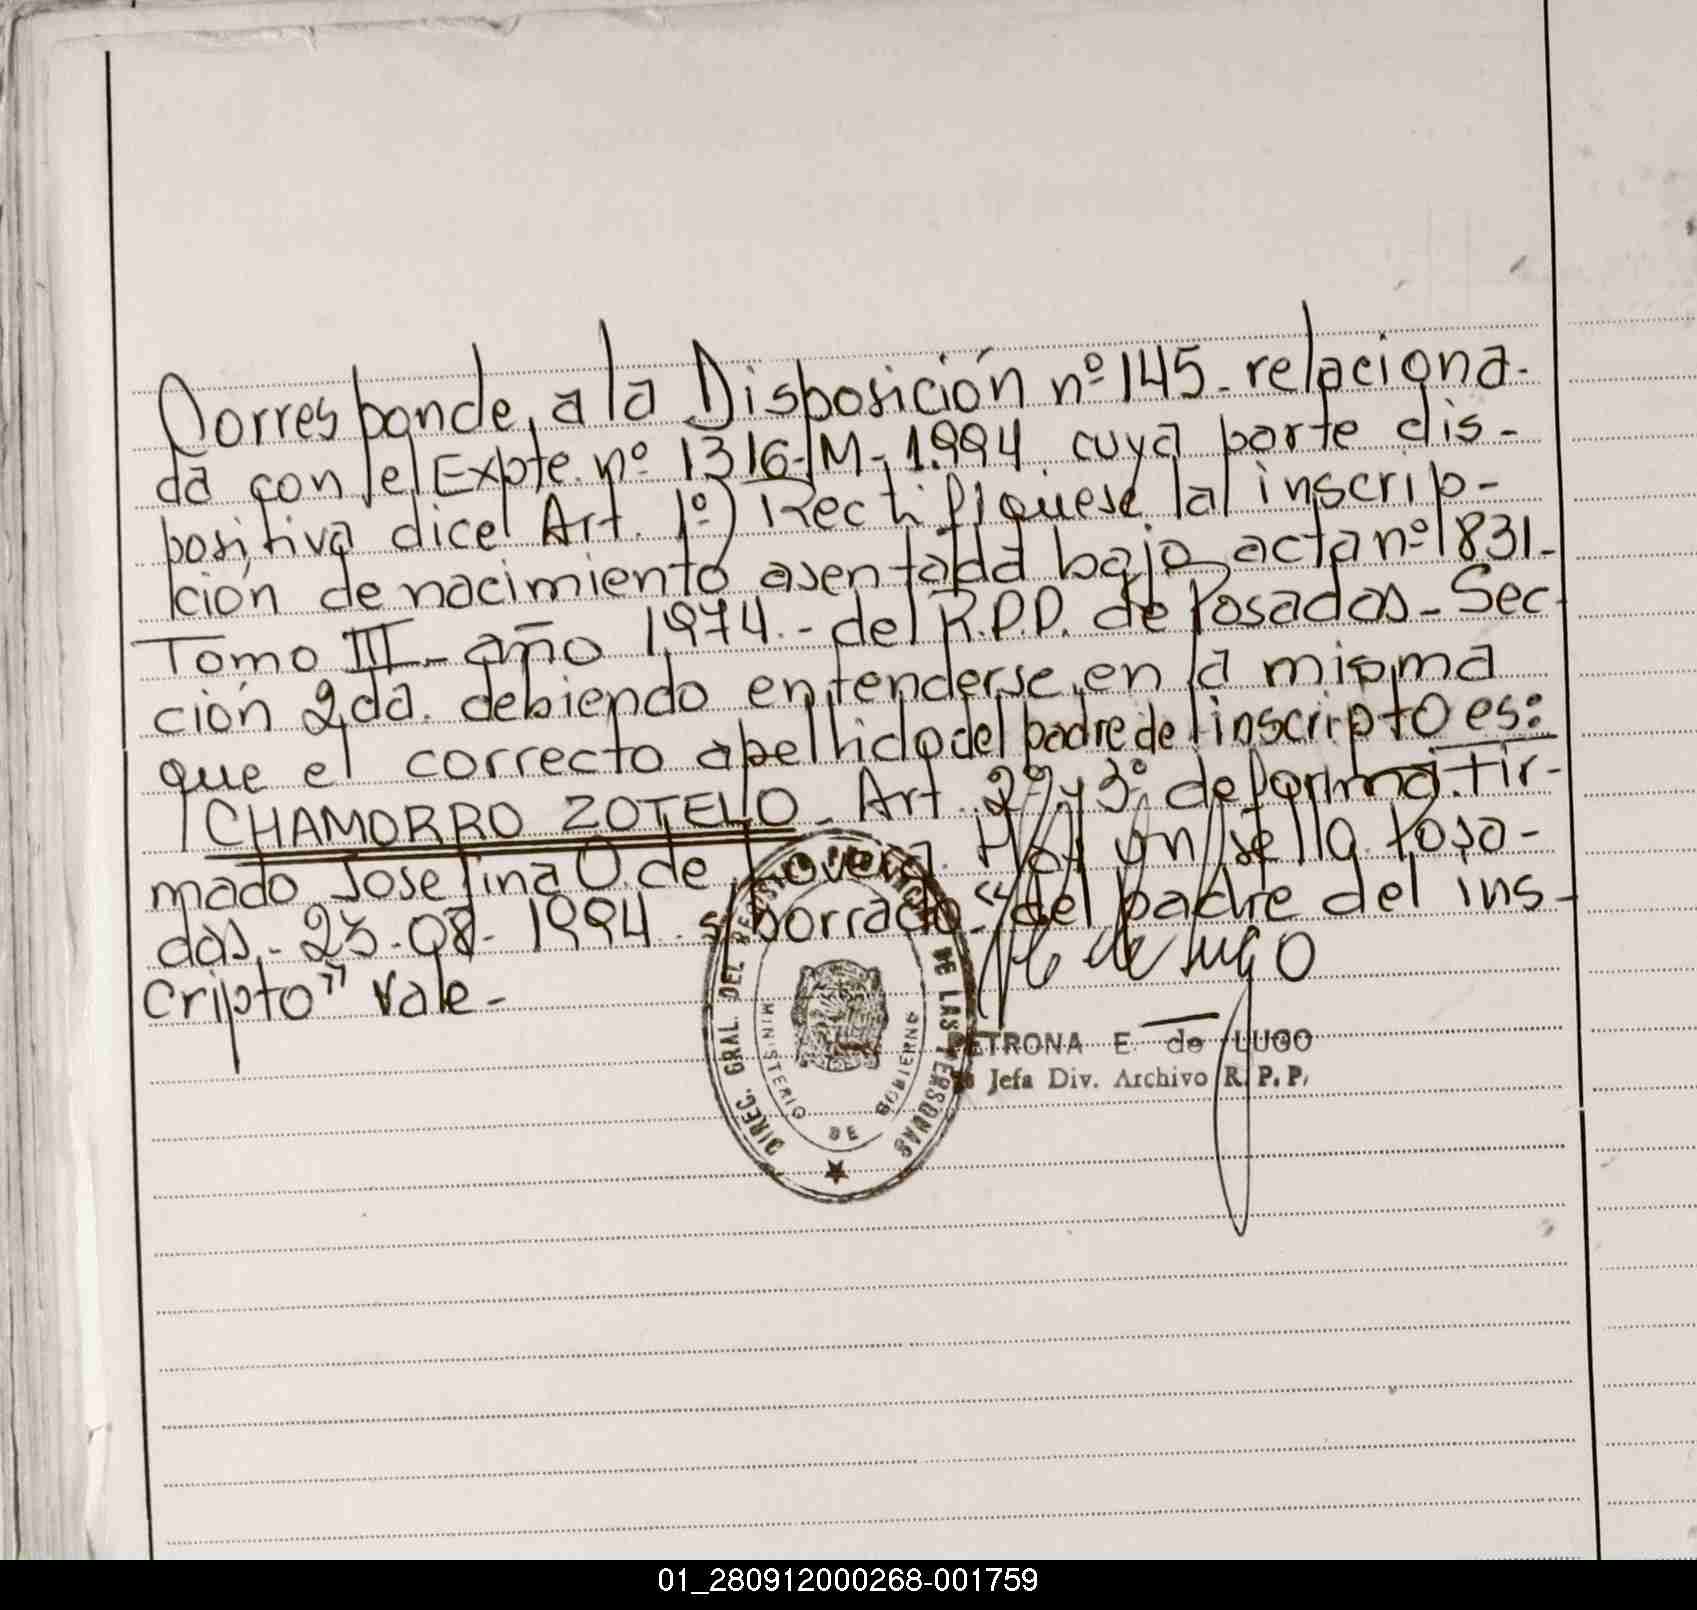 Corresponde, a la Disposición nº 145 - relaciona-
da con el Expte. nº 1316-M-1.994. cuya parte dis-
positiva dice: Art. 1º) Rectifíquese la inscrip-
ción de nacimiento asentada bajo acta nº 1831-
Tomo III - año 1.974.- del R.P.P. de Posadas - Sec
ción 2da. debiendo entenderse en la misma
que el correcto apellido del padre del inscripto es:
CHAMORRO ZOTELO - Art. 2º y 3º de forma. Fir-
mado Josefina O. de Lovera. Hay un sello. Posa-
das.- 23-08-1994. s/borrado "del padre del ins-
cripto" Vale-
de Lugo
PETRONA E. de LUGO
Jefa Div. Archivo R. P. P.
DIREC. GRAL. DEL REGISTRO DE LAS PERSONAS
MINISTERIO DE GOBIERNO
01_280912000268-001759